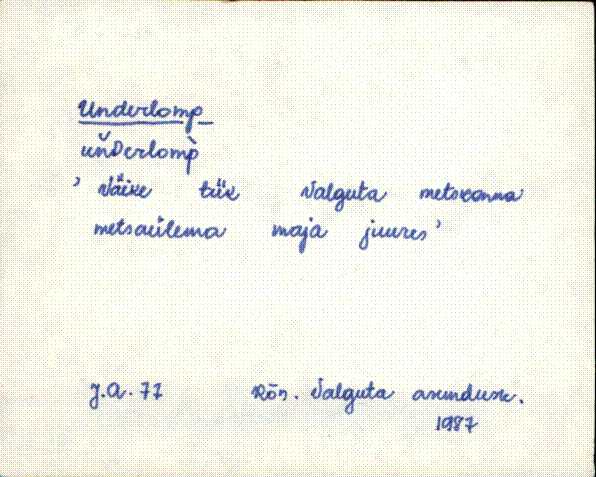 Underlomp
uňDerlomp̀
' Väike tiik Valguta metskonna
metsaülema maja juures'
J.A. 77 Rõn. Valguta asundus.
1987